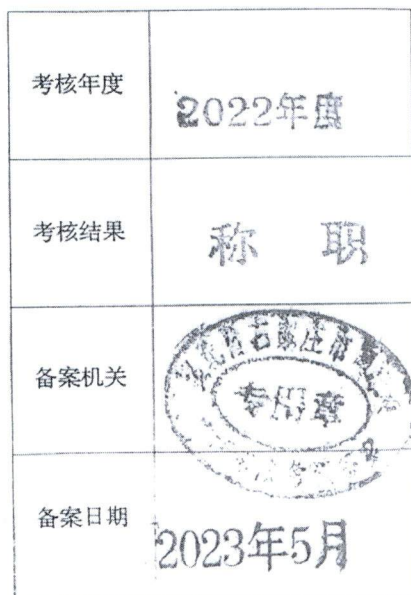 考核年度
2022年度
考核结果
称 职
备案机关
专用章
备案日期
2023年5月